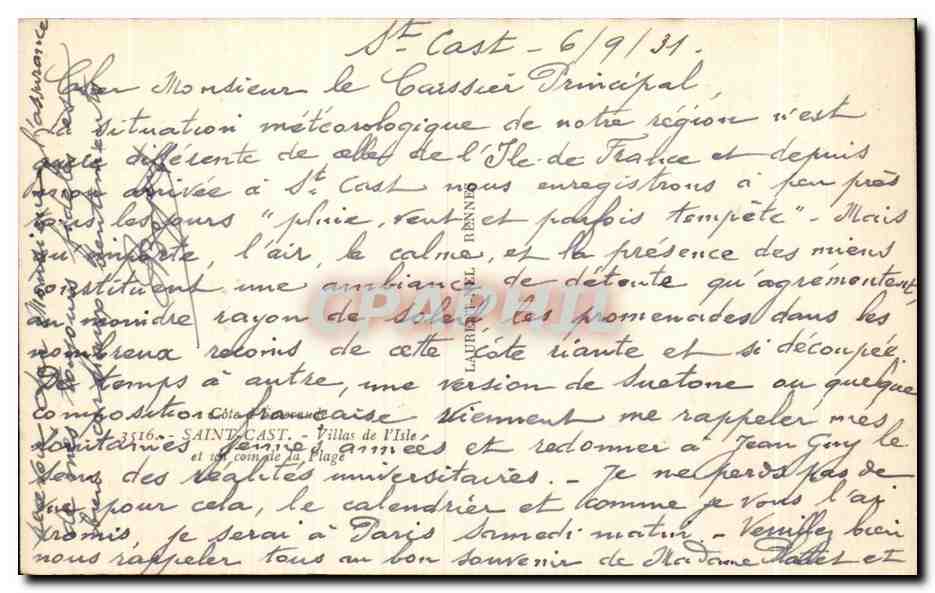 St Cast - 6/9/31.
Cher Monsieur le Caissier Principal,
La situation météorologique de notre région n'est
guère différente de celle de l'Ile de France et depuis
mon arrivée à St Cast nous enregistrons à peu près
tous les jours "pluie, vent et parfois tempête" - Mais
qu'importe, l'air, le calme, et la présence des miens
constituent une ambiance de détente qu'agrémentent
au moindre rayon de soleil les promenades dans les
nombreux recoins de cette côte riante et si découpée.
De temps à autre, une version de Suetone ou quelque
composition française viennent me rappeler mes
lointaines jeunes années et redonner à Jean Guy le
sens des réalités universitaires. - Je ne perds pas de
vue pour cela, le calendrier et comme je vous l'ai
promis, je serai à Paris samedi matin. - Veuillez bien
nous rappeler tous au bon souvenir de Madame et
Monsieur l'assurance
de mes toujours
LAURENT-NEL RENNES
Côte d'Emeraude
3516. - SAINT-CAST. - Villas de l'Isle
et un coin de la Plage
CPAPHIL